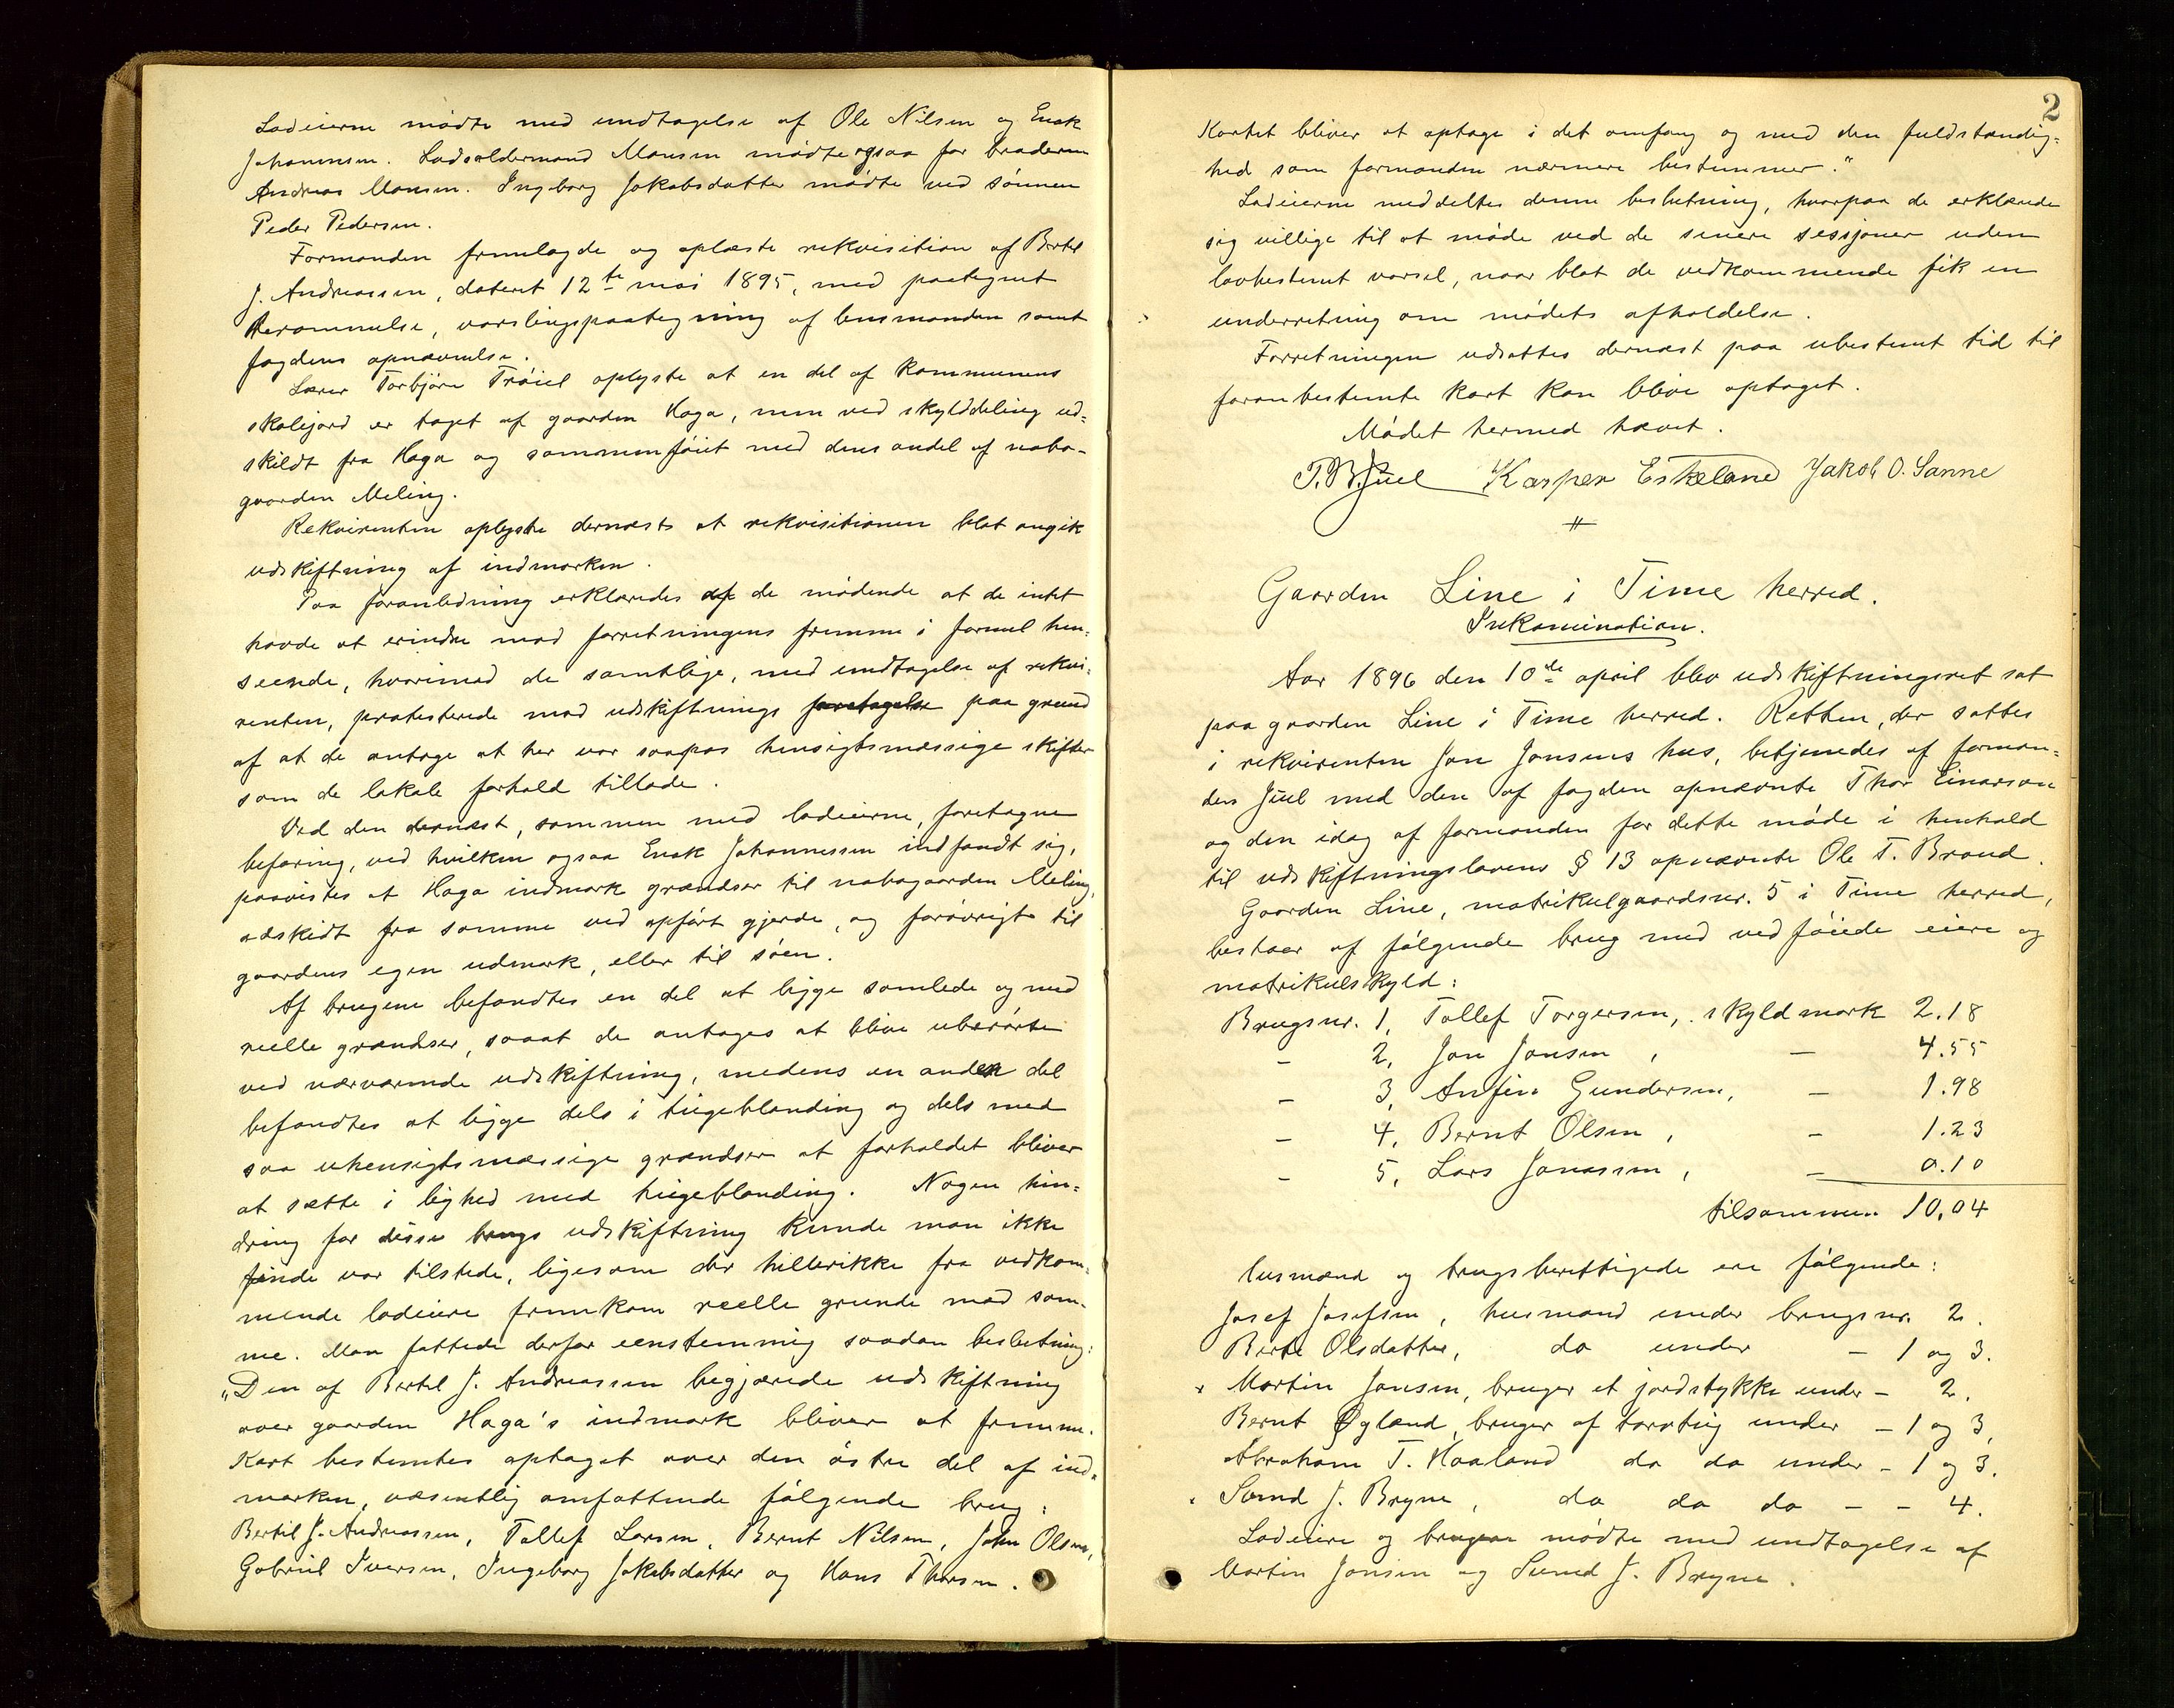 Lodeierne mødte med undtagelse af Ole Nilsen og Enok
Johannesen. Lodsoldermand Monsen mødte ogsaa for broderen
Andreas Monsen. Ingeborg Jakobsdatter mødte ved sønnen
Peder Pedersen.
Formanden fremlagde og oplæste rekvisition af Bertel
J. Andreassen, dateret 12te mai 1895, med paategnet
berammelse, varslingspaategning af lensmanden samt
fogdens opnævnelse.
Lærer Torbjørn Trøiel oplyste at en del af kommunens
skolejord er taget af gaarden Haga, men ved skylddeling ud-
skildt fra Haga og sammenføiet med dens andel af nabo-
gaarden Meling.
Rekvirenten oplyste dernæst at rekvisitionen blot angik
udskiftning af indmarken.
Paa foranledning erklæredes af de mødende at de intet
havde at erindre mod forretningens fremme i formel hen-
seende, hvorimod de samtlige, med undtagelse af rekvi-
renten, protesterede mod udskiftnings foretagelse paa grund
af at de antage at her var saapas hensigtsmæssige skifter
som de lokale forhold tillade.
Ved den dernæst, sammen med lodeierne, foretagne
befaring, ved hvilken ogsaa Enok Johannessen indfandt sig,
paavistes at Haga indmark grændser til nabogaarden Meling,
adskidt fra samme ved opført gjerde, og forøvrigt til
gaardens egen udmark, eller til søen.
Af brugene befandtes en del at ligge samlede og med
reelle grændser, saaat de antages at blive uberørte
ved nærværende udskiftning, medens en anden del
befandtes at ligge dels i teigeblanding og dels med
saa uhensigtsmæssige grændser at forholdet bliver
at sætte i lighed med teigeblanding. Nogen hin-
dring for disse brugs udskiftning kunde man ikke
finde var tilstede, ligesom der hellerikke fra vedkom-
mende lodeiere fremkom reelle grunde mod sam-
me. Man fattede derfor eenstemmig saadan beslutning:
"Den af Bertel J. Andreassen begjærede udskiftning
over gaarden Haga's indmark bliver at fremme.
Kart bestemtes optaget over den østre del af ind-
marken, væsentlig omfattende følgende brug:
Bertil J. Andreassen, Tollef Larsen, Bernt Nilsen, John Olsen,
Gabriel Iversen, Ingeborg Jakobsdatter og Hans Thorsen.
2
Kartet bliver at optage i det omfang og med den fuldstændig-
hed som formanden nærmere bestemmer."
Lodeierne meddeltes denne beslutning, hvorpaa de erklærede
sig villige til at møde ved de senere sessjoner uden
lovbestemt varsel, naar blot de vedkommende fik en
underretning om mødets afholdelse.
Forretningen udsattes dernæst paa ubestemt tid til
foranbestemte kart kan blive optaget.
Mødet hermed hævet.
T. B. Juel Kasper Eskeland Jakob O. Sanne
Gaarden Line i Time herred.
Inkamination.
Aar 1896 den 10de april blev udskiftningsret sat
paa gaarden Line i Time herred. Retten, der sattes
i rekvirenten Jon Jonsens hus, betjenedes af forman-
den Juel med den af fogden opnævnte Thor Einarson
og den idag af formanden for dette møde i henhold
til udskiftningslovens § 13 opnævnte Ole T. Braud.
Gaarden Line, matrikulgaardsnr. 5 i Time herred,
bestaar af følgende brug med vedføiede eiere og
matrikulskyld:
Brugsnr. 1, Tollef Torgersen, skyldmark 2.18
- 2, Jon Jonsen, - 4.55
- 3, Anfin Gundersen, - 1.98
- 4, Bernt Olsen, - 1.23
- 5, Lars Jonassen, - 0.10
tilsammen 10,04
Husmænd og brugsberettigede ere følgende:
Josef Josefsen, husmand under brugsnr. 2.
Berte Olsdatter, do under - 1 og 3.
Martin Jonsen, bruger et jordstykke under - 2.
Bernt Øgland, bruger af torvteig under - 1 og 3,
Abraham T. Haaland do do under - 1 og 3.
Svend J. Bryne, do do do - - 4.
Lodeiere og brugere mødte med undtagelse af
Martin Jonsen og Svend J. Bryne.